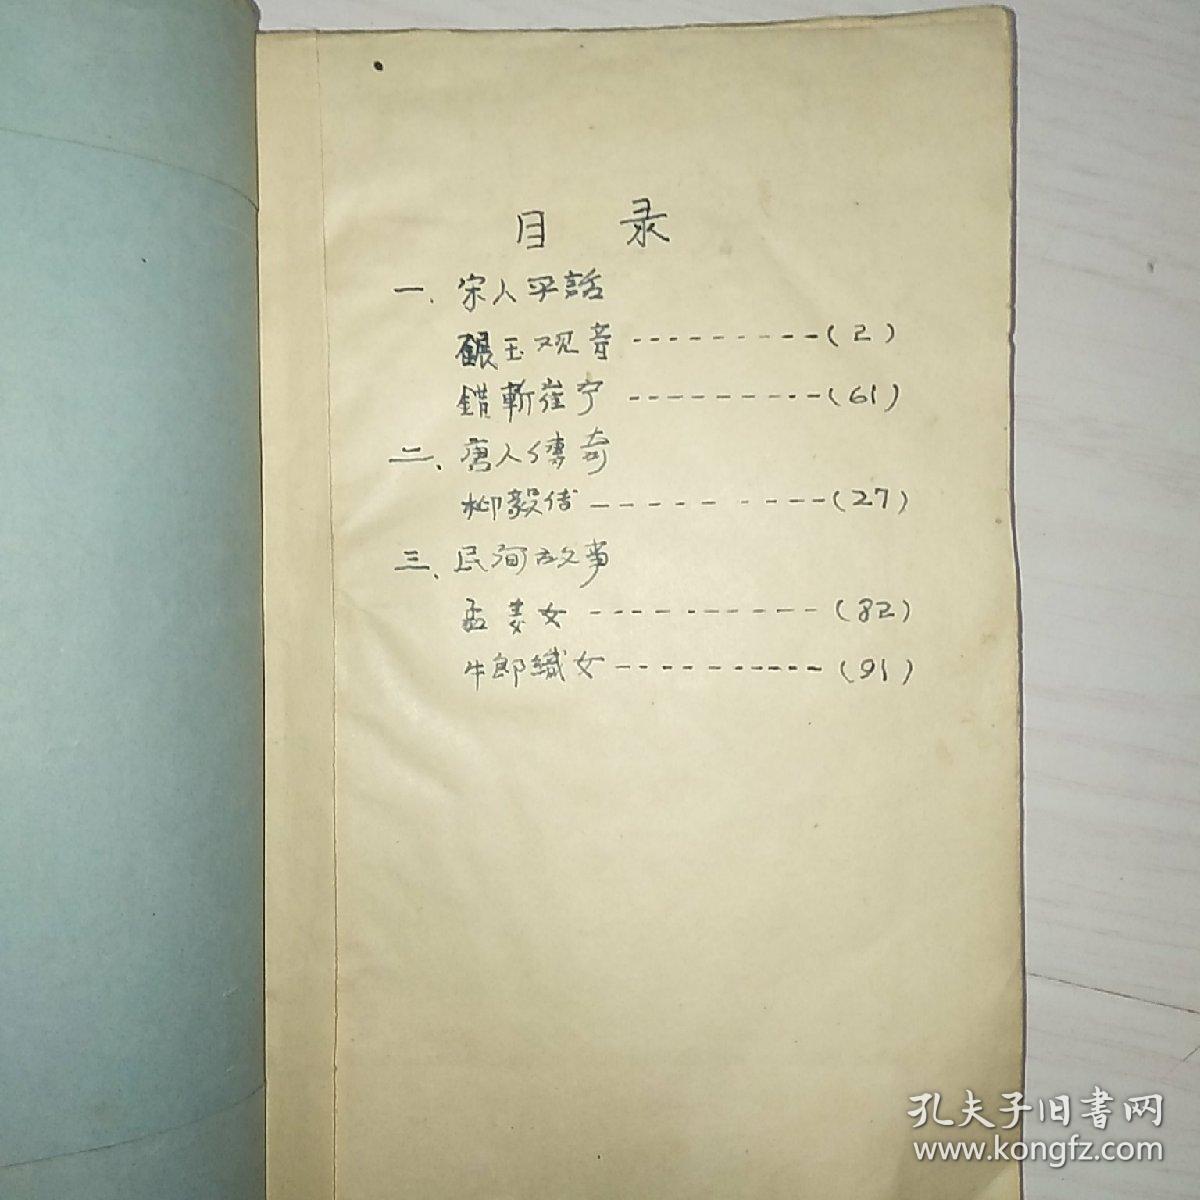 目 录
一、宋人平話
碾玉观音----------(2)
錯斬崔宁----------(61)
二、唐人傳奇
柳毅传---------(27)
三、民间故事
孟姜女----------(82)
牛郎織女----------(91)
孔夫子旧書网
www.kongfz.com